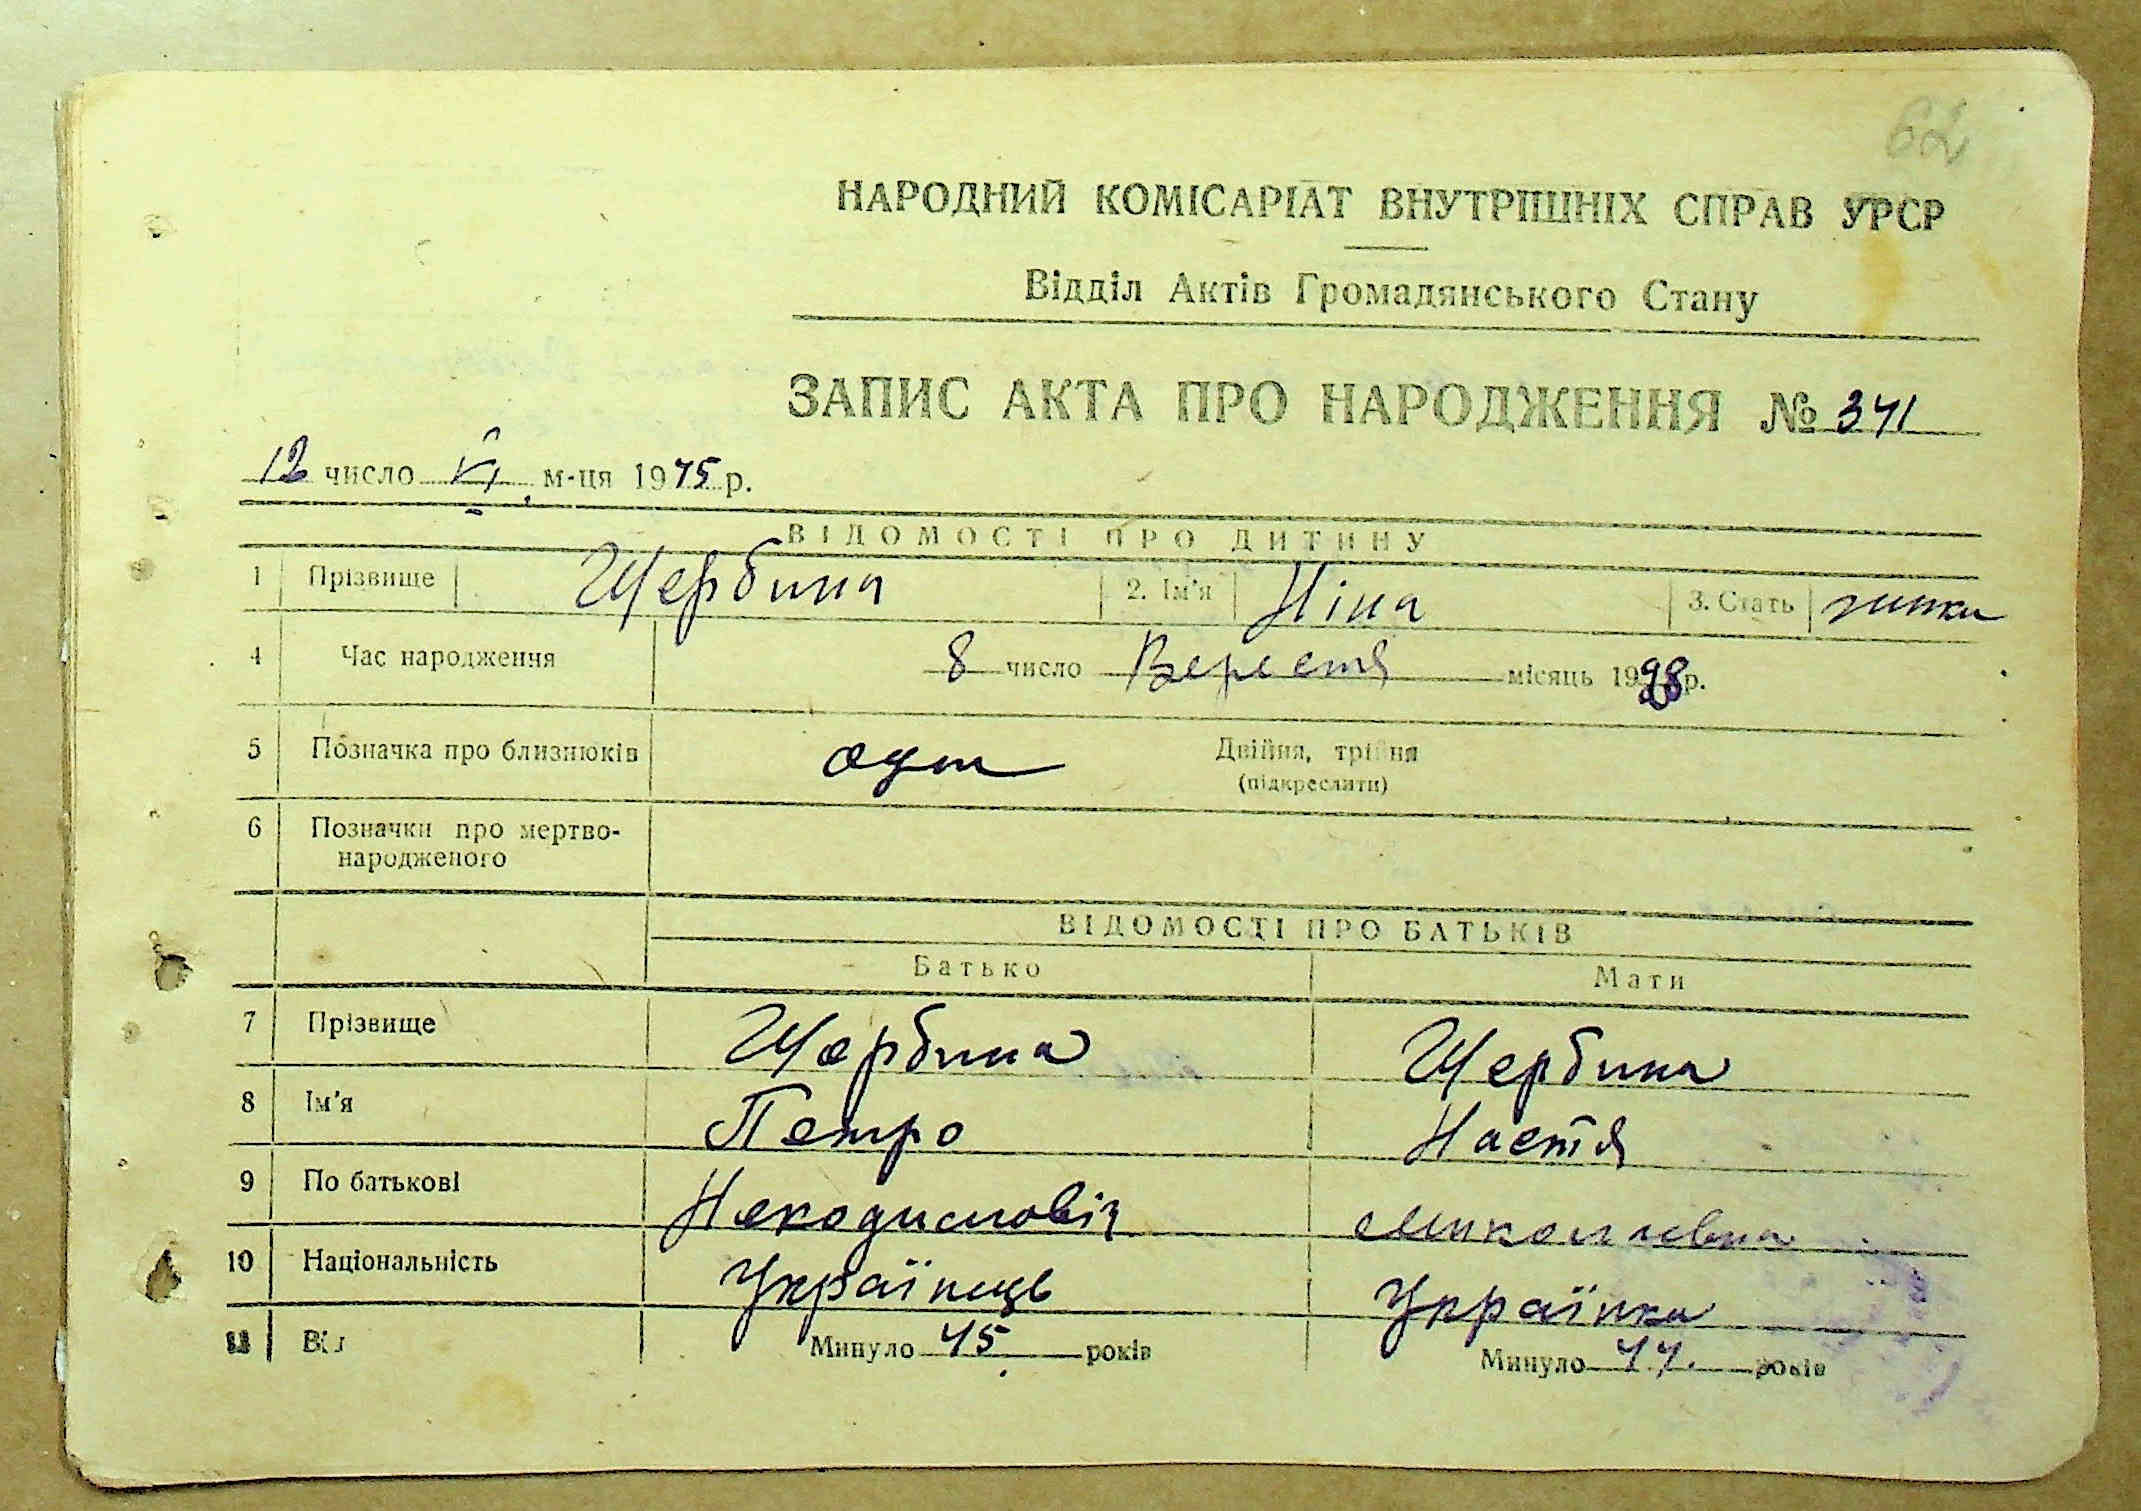 62
НАРОДНИЙ КОМІСАРІАТ ВНУТРІШНІХ СПРАВ УРСР
Відділ Актів Громадянського Стану
ЗАПИС АКТА ПРО НАРОДЖЕННЯ № 341
12 число VI м-ця 1945 р.
ВІДОМОСТІ ПРО ДИТИНУ
1 Прізвище Щербина 2. Ім'я Ніна 3. Стать жінка
4 Час народження 8 число Верестя місяць 1928 р.
5 Позначка про близнюків одна Двійня, трійня
(підкреслити)
6 Позначки про мертво-
народженого
ВІДОМОСТІ ПРО БАТЬКІВ
Батько Мати
7 Прізвище Щербина Щербина
8 Ім'я Петро Настя
9 По батькові Никодимовіч Миколаевна
10 Національність Українець Українка
11 Вік Минуло 45 років Минуло 44 років